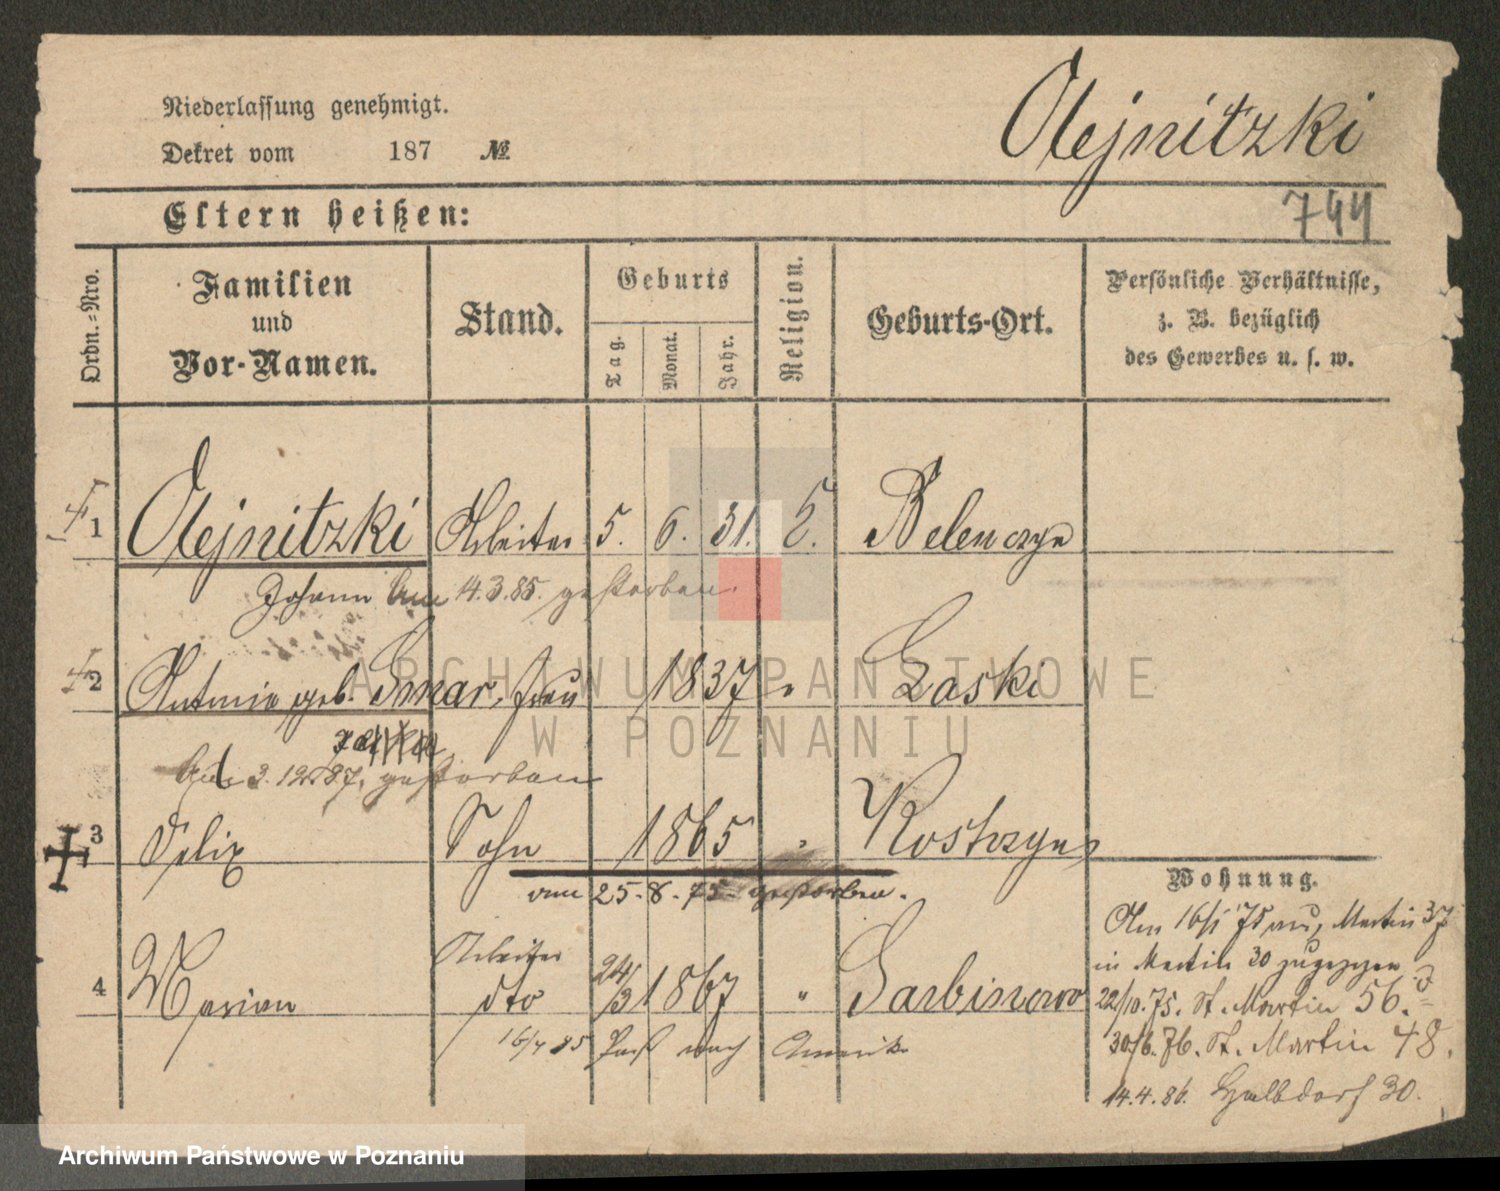 Niederlassung genehmigt.
Dekret vom 187 №
Olejnitzki
744
Eltern heißen:
Ordn.=Nro.
Familien und Vor-Namen.
Stand.
Geburts
Tag.
Monat.
Jahr.
Religion.
Geburts-Ort.
Persönliche Verhältnisse,
z. B. bezüglich
des Gewerbes u. s. w.
1 Olejnitzki Arbeiter 5. 6. 31. Belenczyn
Johann am 14.3.85. gestorben.
2 Antonie geb. Frau 1837 " Laski
am 3.12.87. gestorben
3 Felix Sohn 1865 "
am 25.8.75. gestorben.
4 Marian Arbeiter dto 24/3 1867 " Sarbinowo
16/4 85 Paß nach Amerika
Wohnung.
Am 16/1 75 Martin 37
in Martin 30 zugezogen
22/10.75. St. Martin 56.
30/6.76. St. Martin 48.
14.4.86. Halbdorf 30.
ARCHIWUM PAŃSTWOWE
W POZNANIU
Archiwum Państwowe w Poznaniu